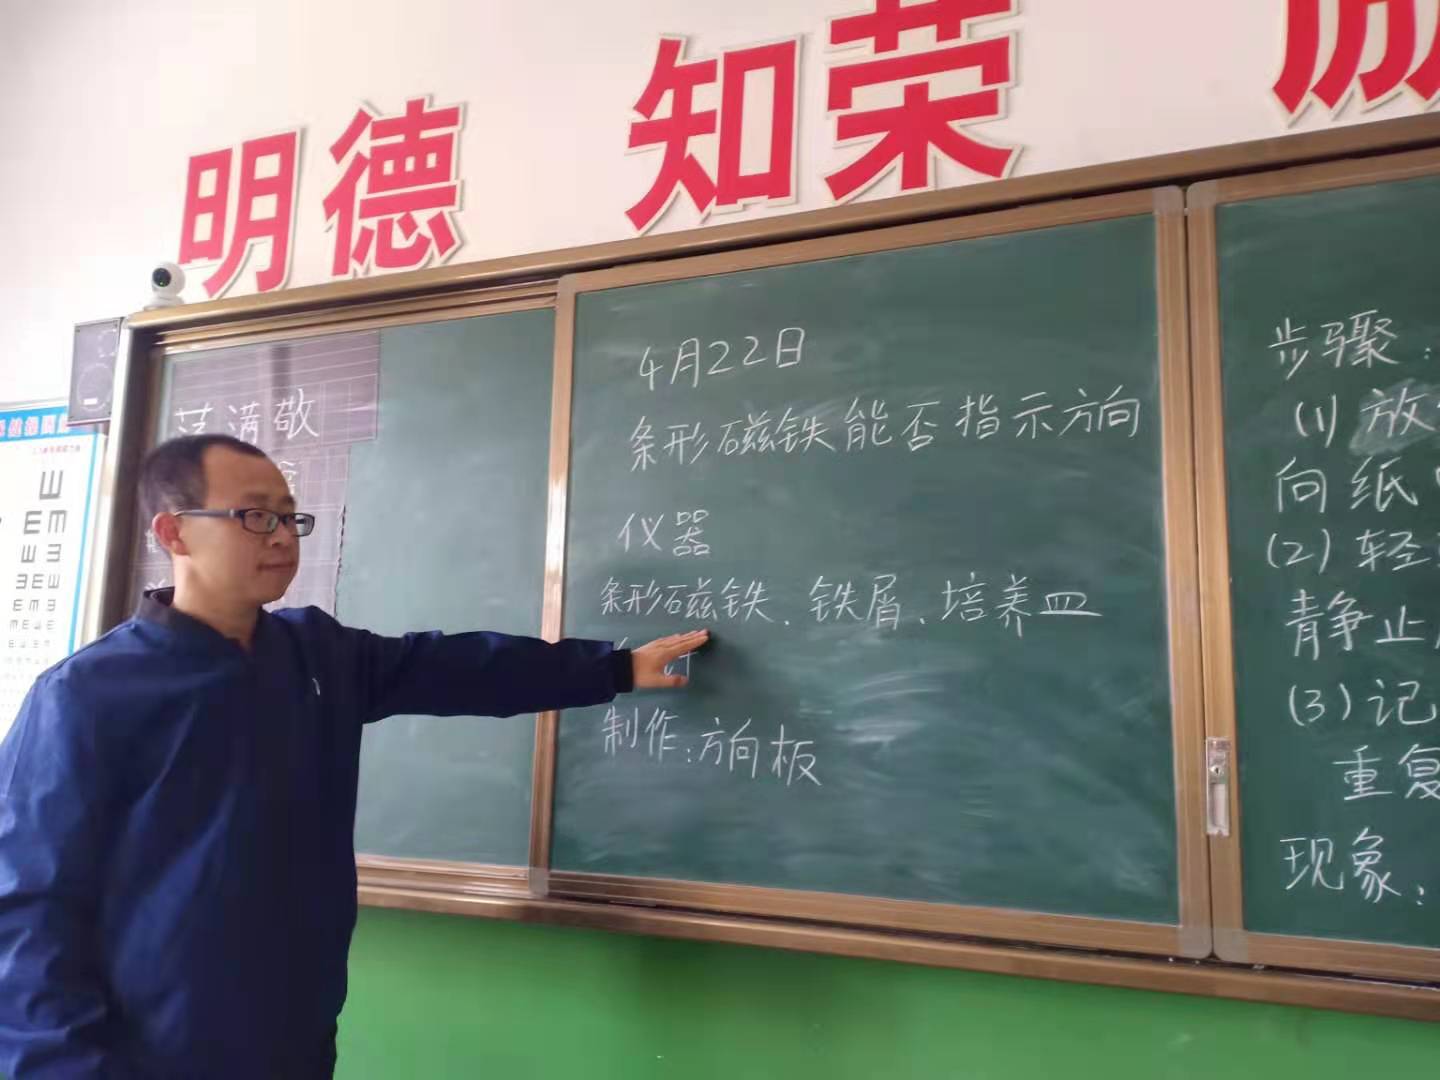 明德 知荣
范满敬
4月22日
条形磁铁能否指示方向
仪器
条形磁铁、铁屑、培养皿
制作:方向板
步骤:
(1)放
向纸
(2)轻
静止
(3)记
重复
现象: